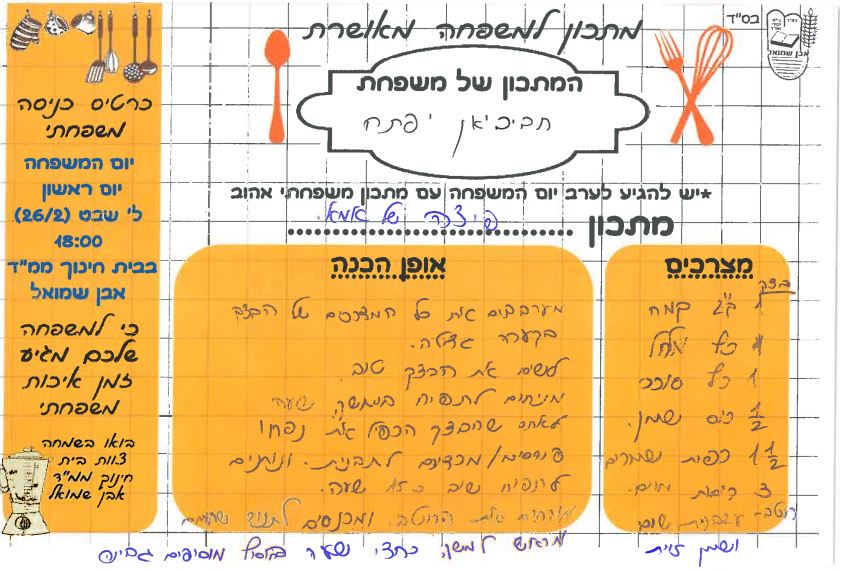 בס"ד
אבן שמואל
מתכון למשפחה מאושרת
המתכון של משפחת
חביביאן יפתח
*יש להגיע לערב יום המשפחה עם מתכון משפחתי אהוב
מתכון פיצה של אמא.
מצרכים
בצק
1 ק"ג קמח
1 כף מלח
1 כף סוכר
1/2 כוס שמן.
1 1/2 כפות שמרים
3 כוסות מים.
רוטב- עגבניות שום
ושמן זית
אופן הכנה
מערבבים את כל המצרכים של הבצק
בקערה גדולה.
לשים את הבצק טוב
מניחים לתפיחה במשך שעה
לאחר שהבצק הכפיל את נפחו
פורסים/מכדרים לתבנית. ונותנים
לתפוח שוב כ 15 שעה.
מורחים את הרוטב. ומכנסים לתנור
מראש למשך כחצי שעה בסוף מוסיפים גבינה
כרטיס כניסה
משפחתי
יום המשפחה
יום ראשון
לי שבט (26/2)
18:00
בבית חינוך ממ"ד
אבן שמואל
כי למשפחה
שלכם מגיע
זמן איכות
משפחתי
בואו בשמחה
צוות בית
חינוך ממ"ד
אבן שמואל